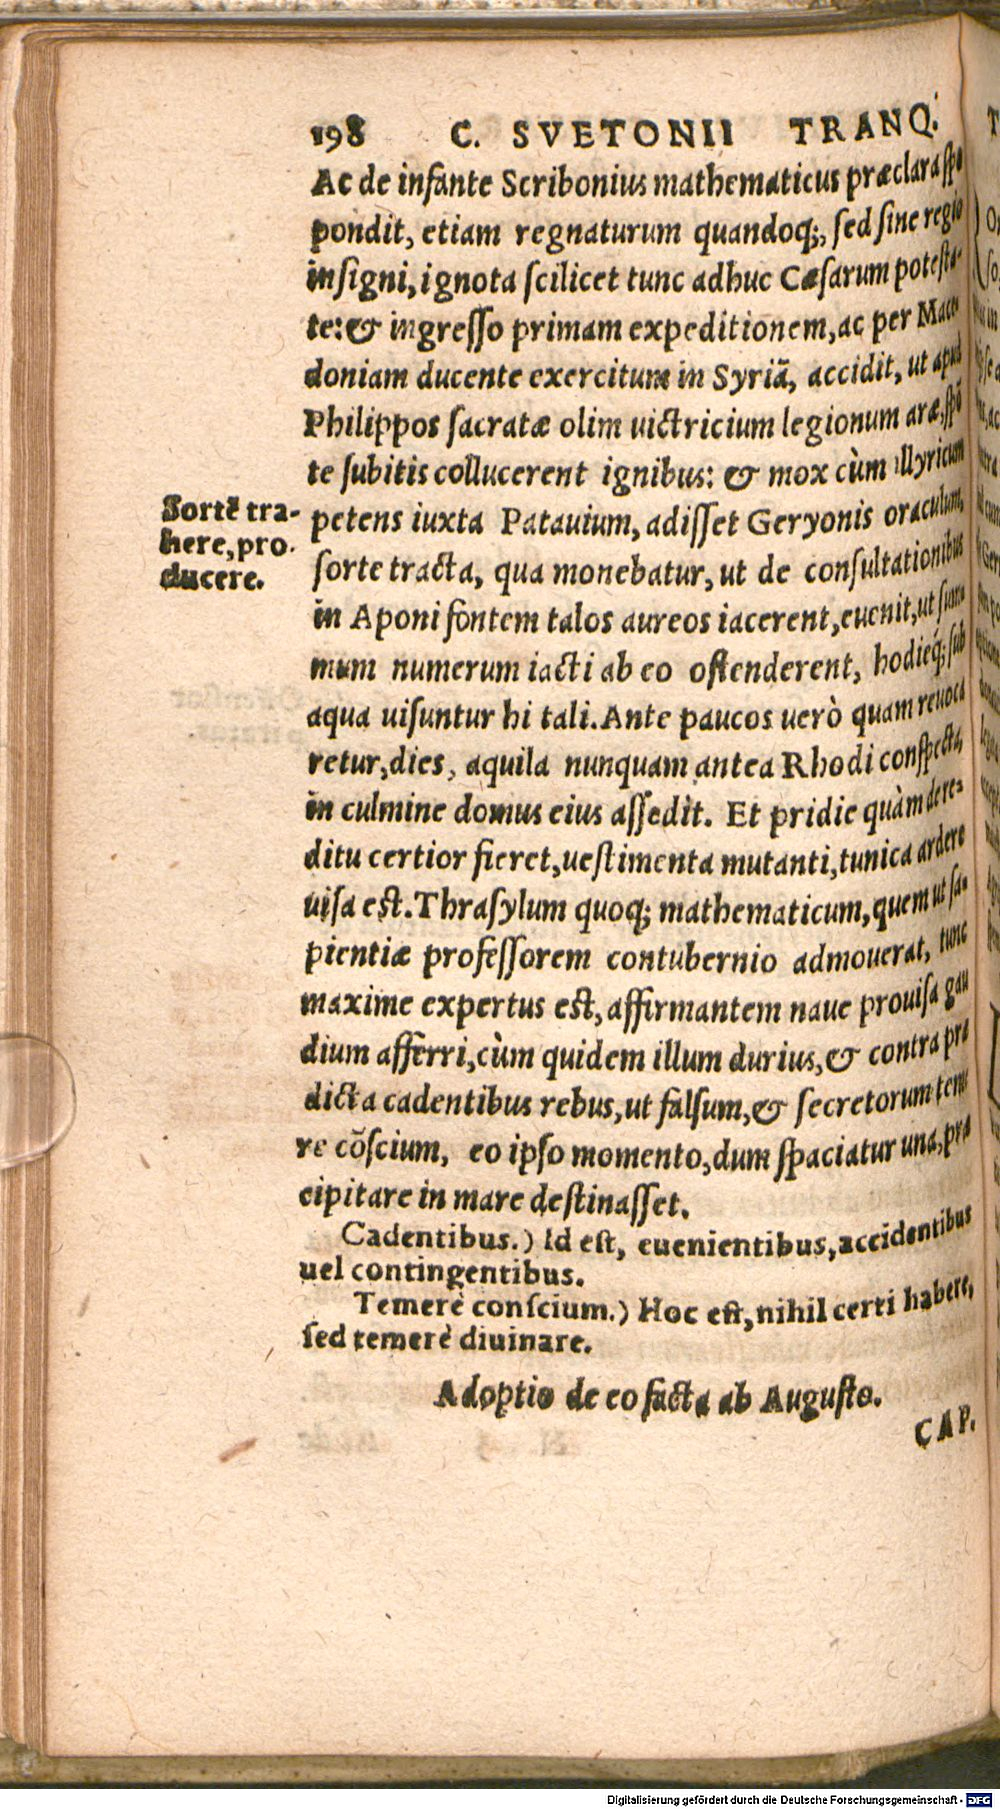 198 C. SVETONII TRANQ.
Ac de infante Scribonius mathematicus præclara spo
pondit, etiam regnaturum quandoq;, sed sine regio
insigni, ignota scilicet tunc adhuc Cæsarum potesta-
te: & ingresso primam expeditionem, ac per Mace
doniam ducente exercitum in Syriã, accidit, ut apud
Philippos sacratæ olim uictricium legionum aræ, spõ
te subitis collucerent ignibus: & mox cùm Illyricum
petens iuxta Patauium, adisset Geryonis oraculum,
sorte tracta, qua monebatur, ut de consultationibus
in Aponi fontem talos aureos iacerent, euenit, ut sum
mum numerum iacti ab eo ostenderent, hodieq́; sub
aqua uisuntur hi tali. Ante paucos uerò quam reuoca
retur, dies, aquila nunquam antea Rhodi conspecta,
in culmine domus eius assedit. Et pridie quàm de re-
ditu certior fieret, uestimenta mutanti, tunica ardere
uisa est. Thrasylum quoq; mathematicum, quem ut sa-
pientiæ professorem contubernio admouerat, tunc
maxime expertus est, affirmantem naue prouisa gau
dium afferri, cùm quidem illum durius, & contra præ
dicta cadentibus rebus, ut falsum, & secretorum teme
re cõscium, eo ipso momento, dum spaciatur una, præ
cipitare in mare destinasset.
Sortẽ tra-
here, pro
ducere.
Cadentibus.) Id est, euenientibus, accidentibus
uel contingentibus.
Temerè conscium.) Hoc est, nihil certi habere,
sed temerè diuinare.
Adoptio de eo facta ab Augusto.
CAP.
Digitalisierung gefördert durch die Deutsche Forschungsgemeinschaft - DFG